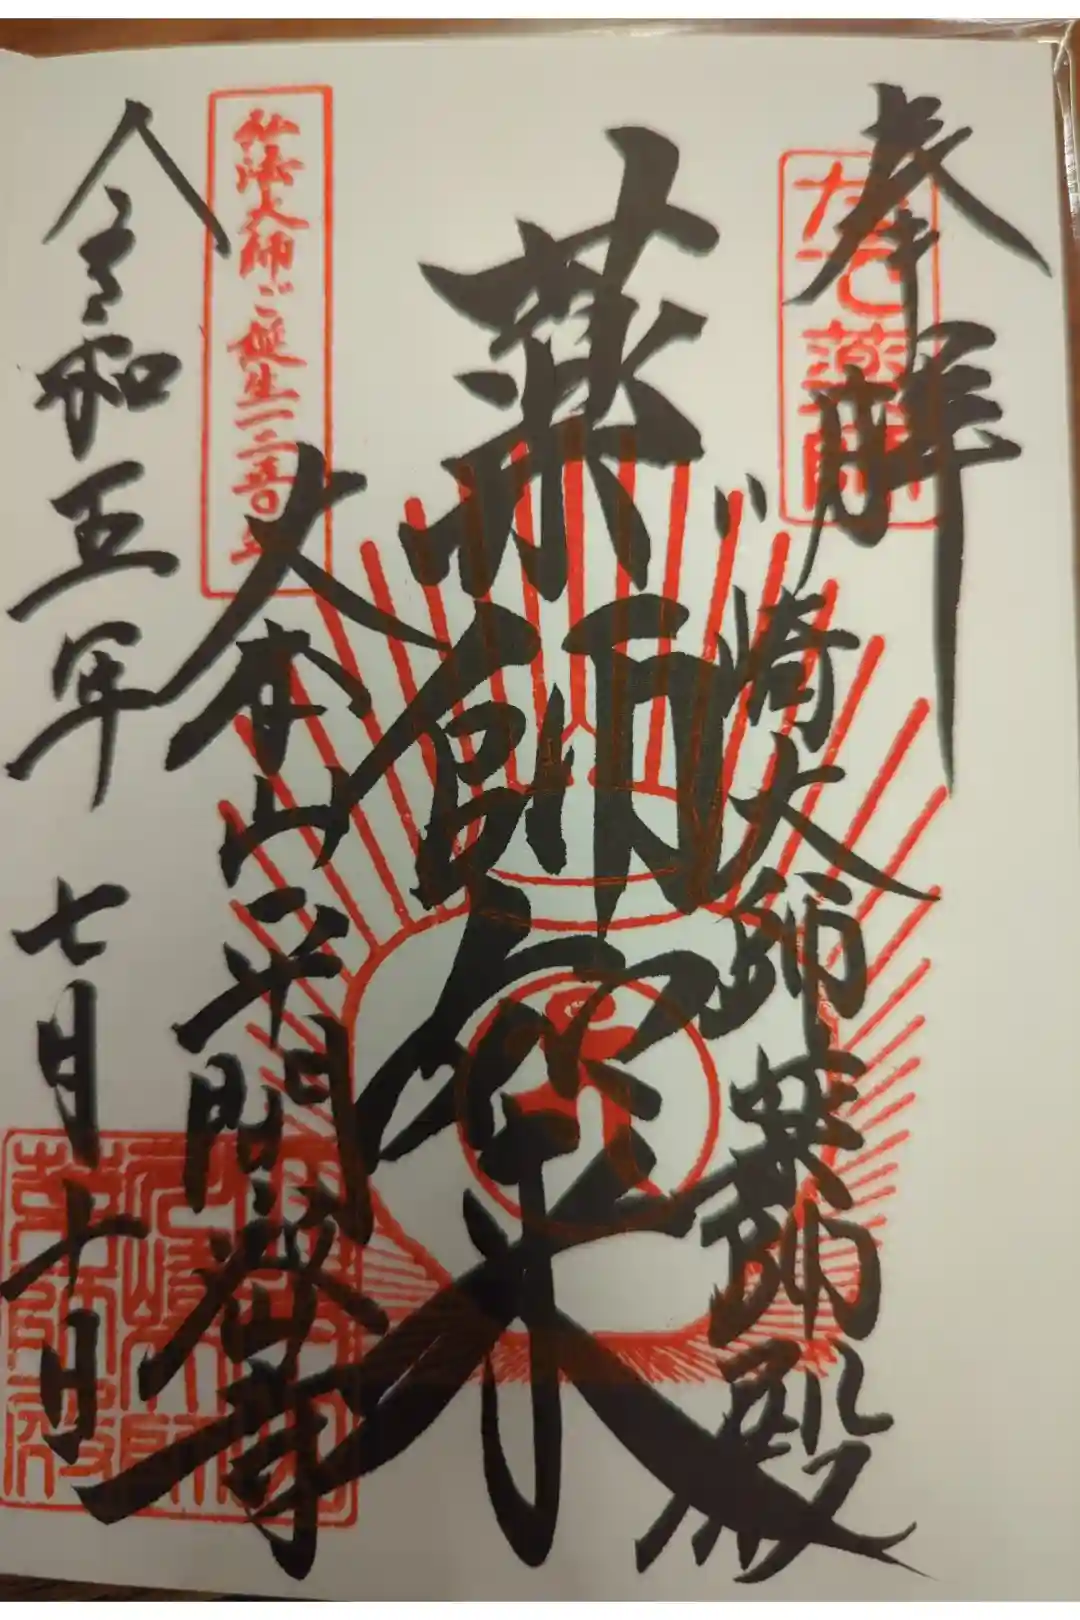 奉拝
なで薬師
川崎大師薬師殿
薬師如来
弘法大師ご誕生一二五〇年
大本山平間寺
令和五年七月十日
川崎大師
薬師殿